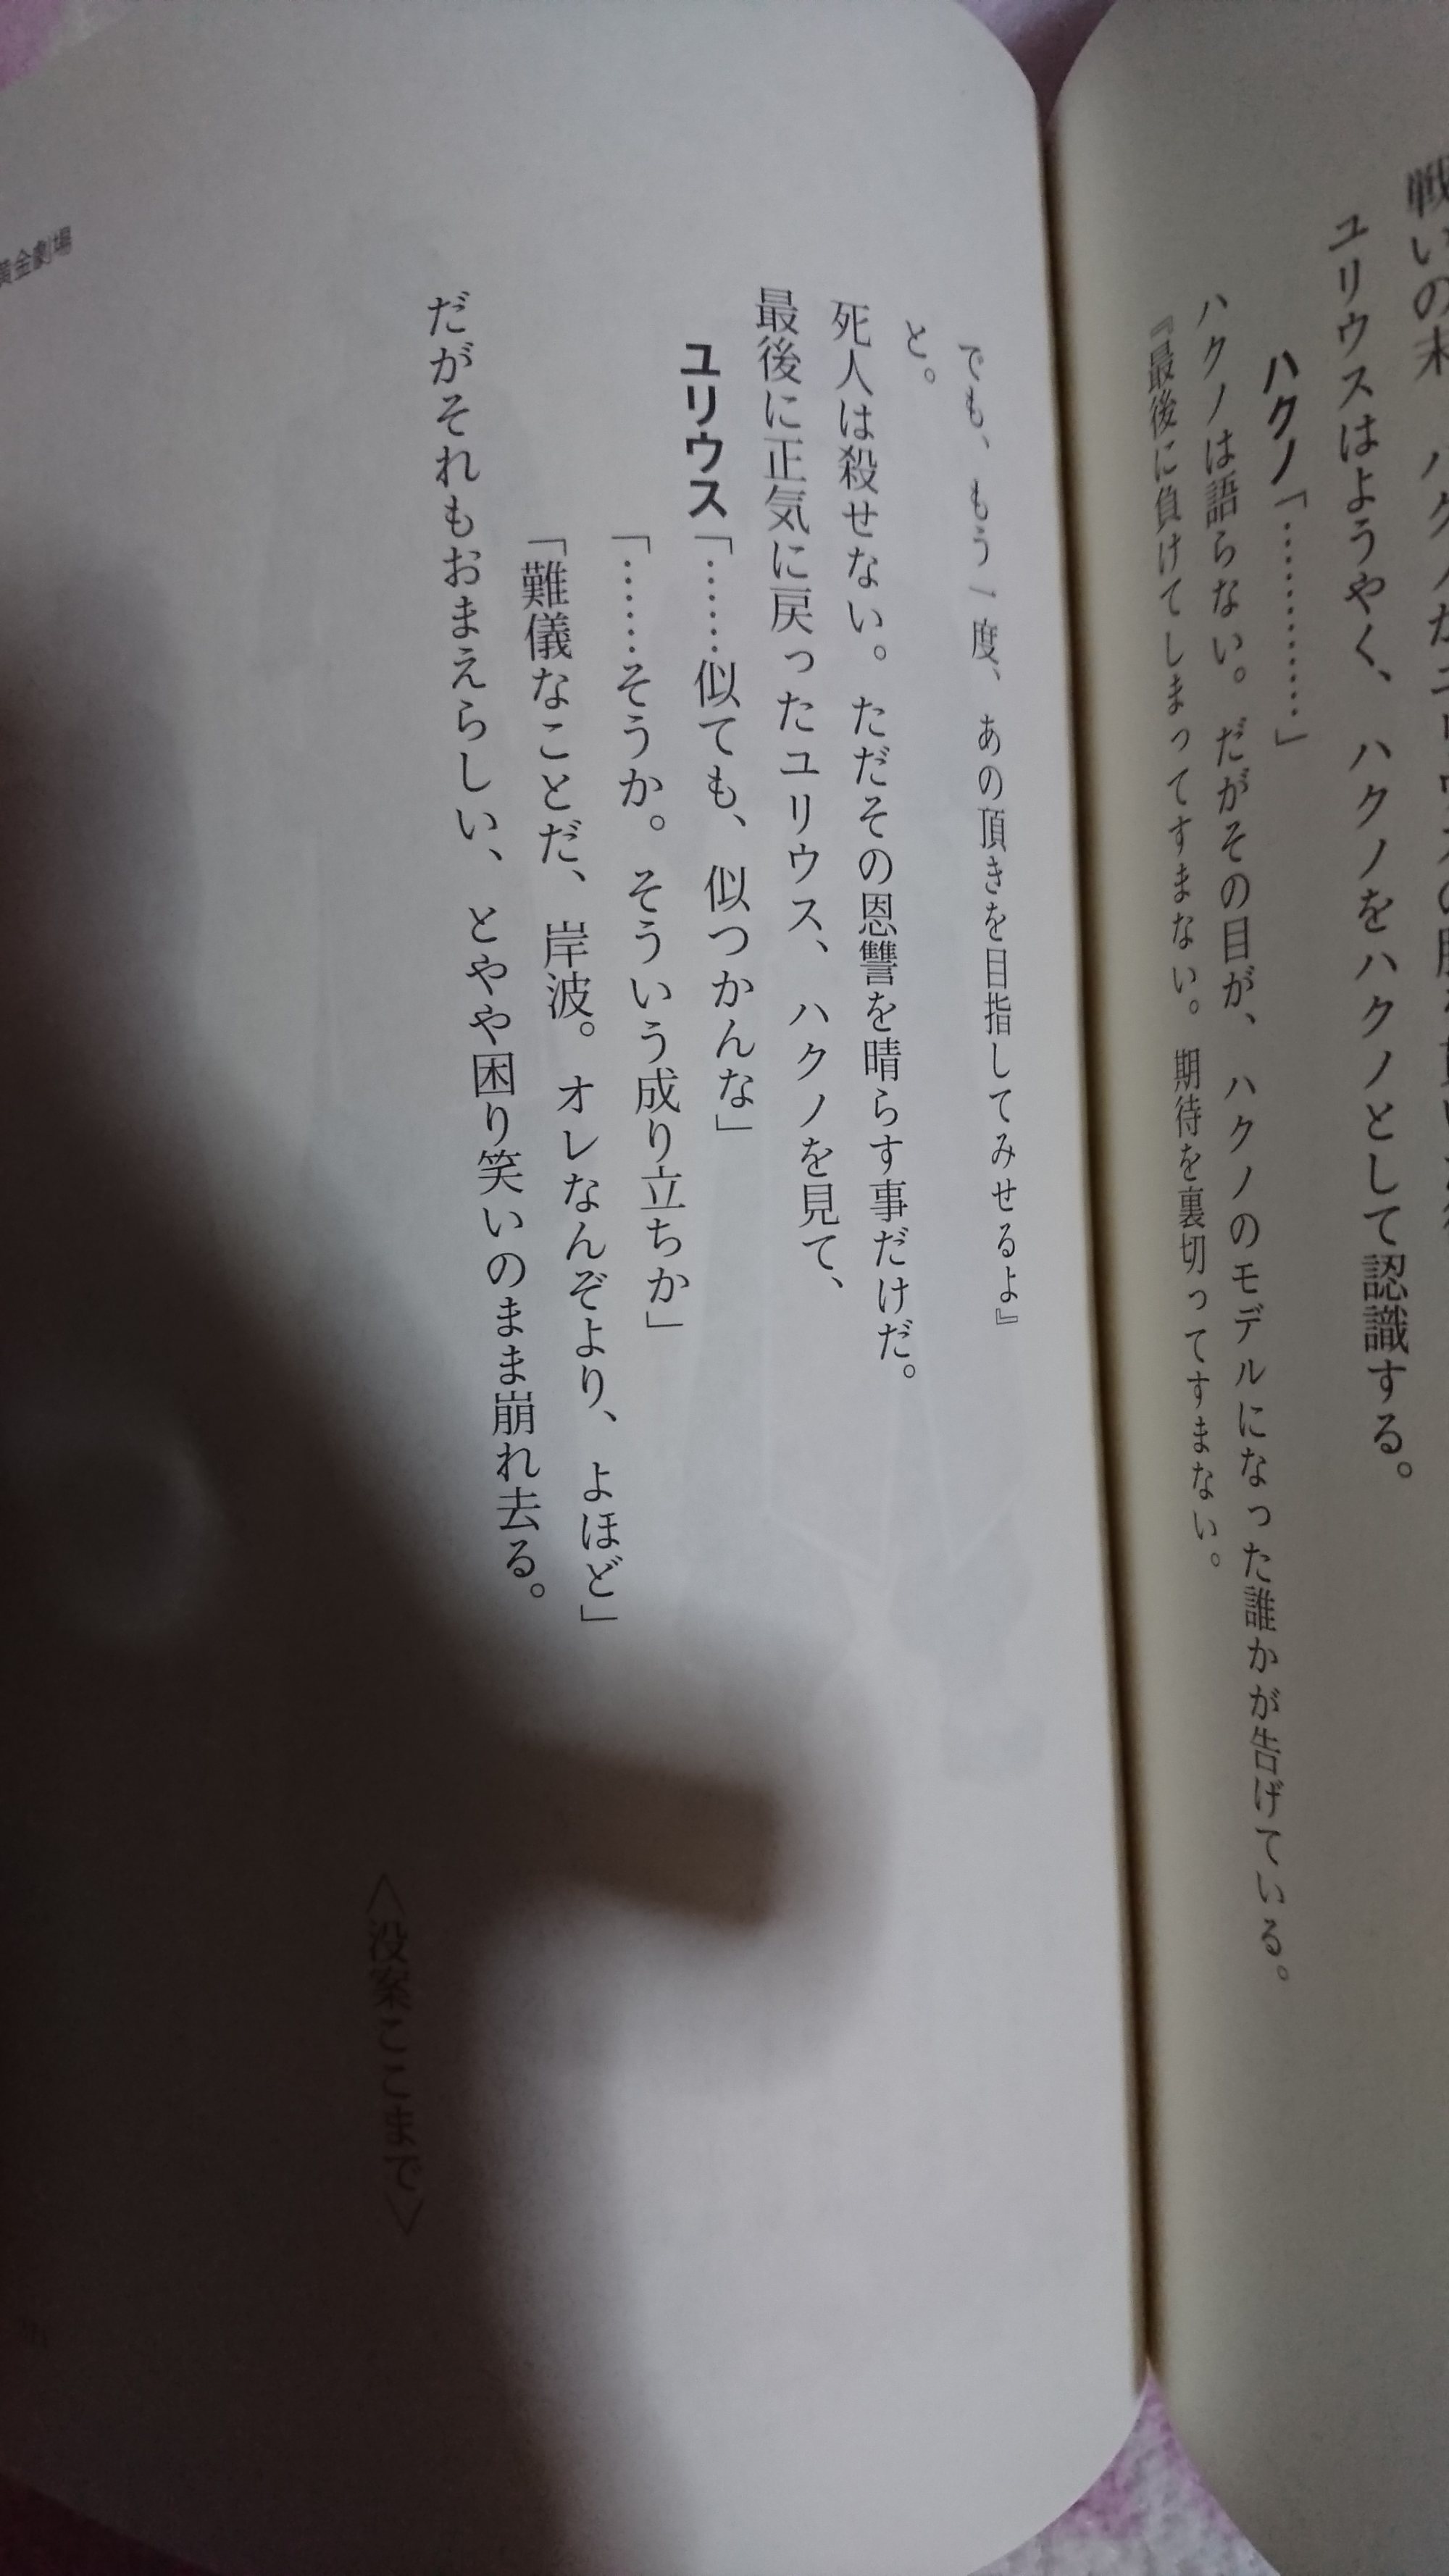 戦いの末、ハクノが
ユリウスはようやく、ハクノをハクノとして認識する。
ハクノ「…………」
ハクノは語らない。だがその目が、ハクノのモデルになった誰かが告げている。
『最後に負けてしまってすまない。期待を裏切ってすまない。
でも、もう一度、あの頂きを目指してみせるよ』
と。
死人は殺せない。ただその恩讐を晴らす事だけだ。
最後に正気に戻ったユリウス、ハクノを見て、
ユリウス「……似ても、似つかんな」
「……そうか。そういう成り立ちか」
「難儀なことだ、岸波。オレなんぞより、よほど」
だがそれもおまえらしい、とやや困り笑いのまま崩れ去る。
＜没案ここまで＞
黄金劇場